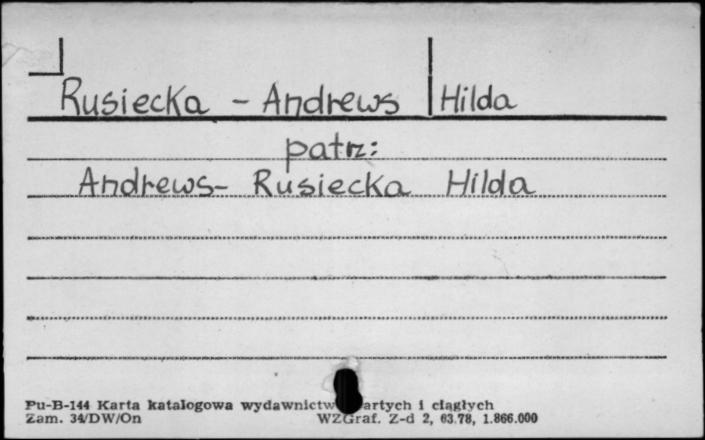 Rusiecka - Andrews Hilda
patrz:
Andrews- Rusiecka Hilda
Pu-B-144 Karta katalogowa wydawnictw artych i ciągłych
Zam. 34/DW/On WZGraf. Z-d 2, 63.78, 1.866.000